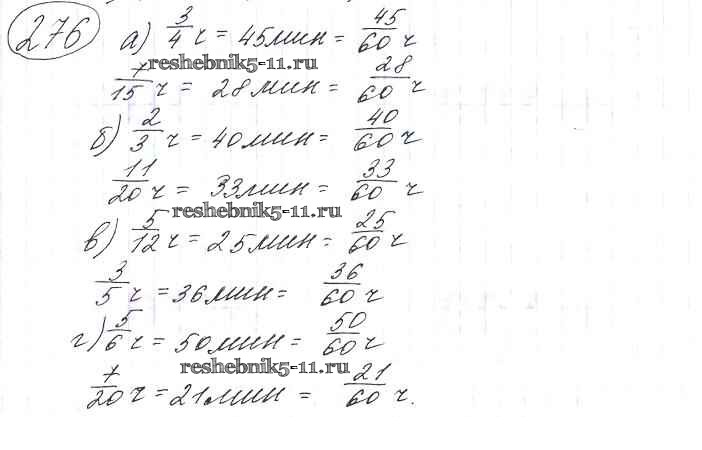 276 а) 3/4 ч = 45 мин = 45/60 ч
reshebnik5-11.ru
7/15 ч = 28 мин = 28/60 ч
б) 2/3 ч = 40 мин = 40/60 ч
11/20 ч = 33 мин = 33/60 ч
reshebnik5-11.ru
в) 5/12 ч = 25 мин = 25/60 ч
3/5 ч = 36 мин = 36/60 ч
г) 5/6 ч = 50 мин = 50/60 ч
reshebnik5-11.ru
7/20 ч = 21 мин = 21/60 ч.